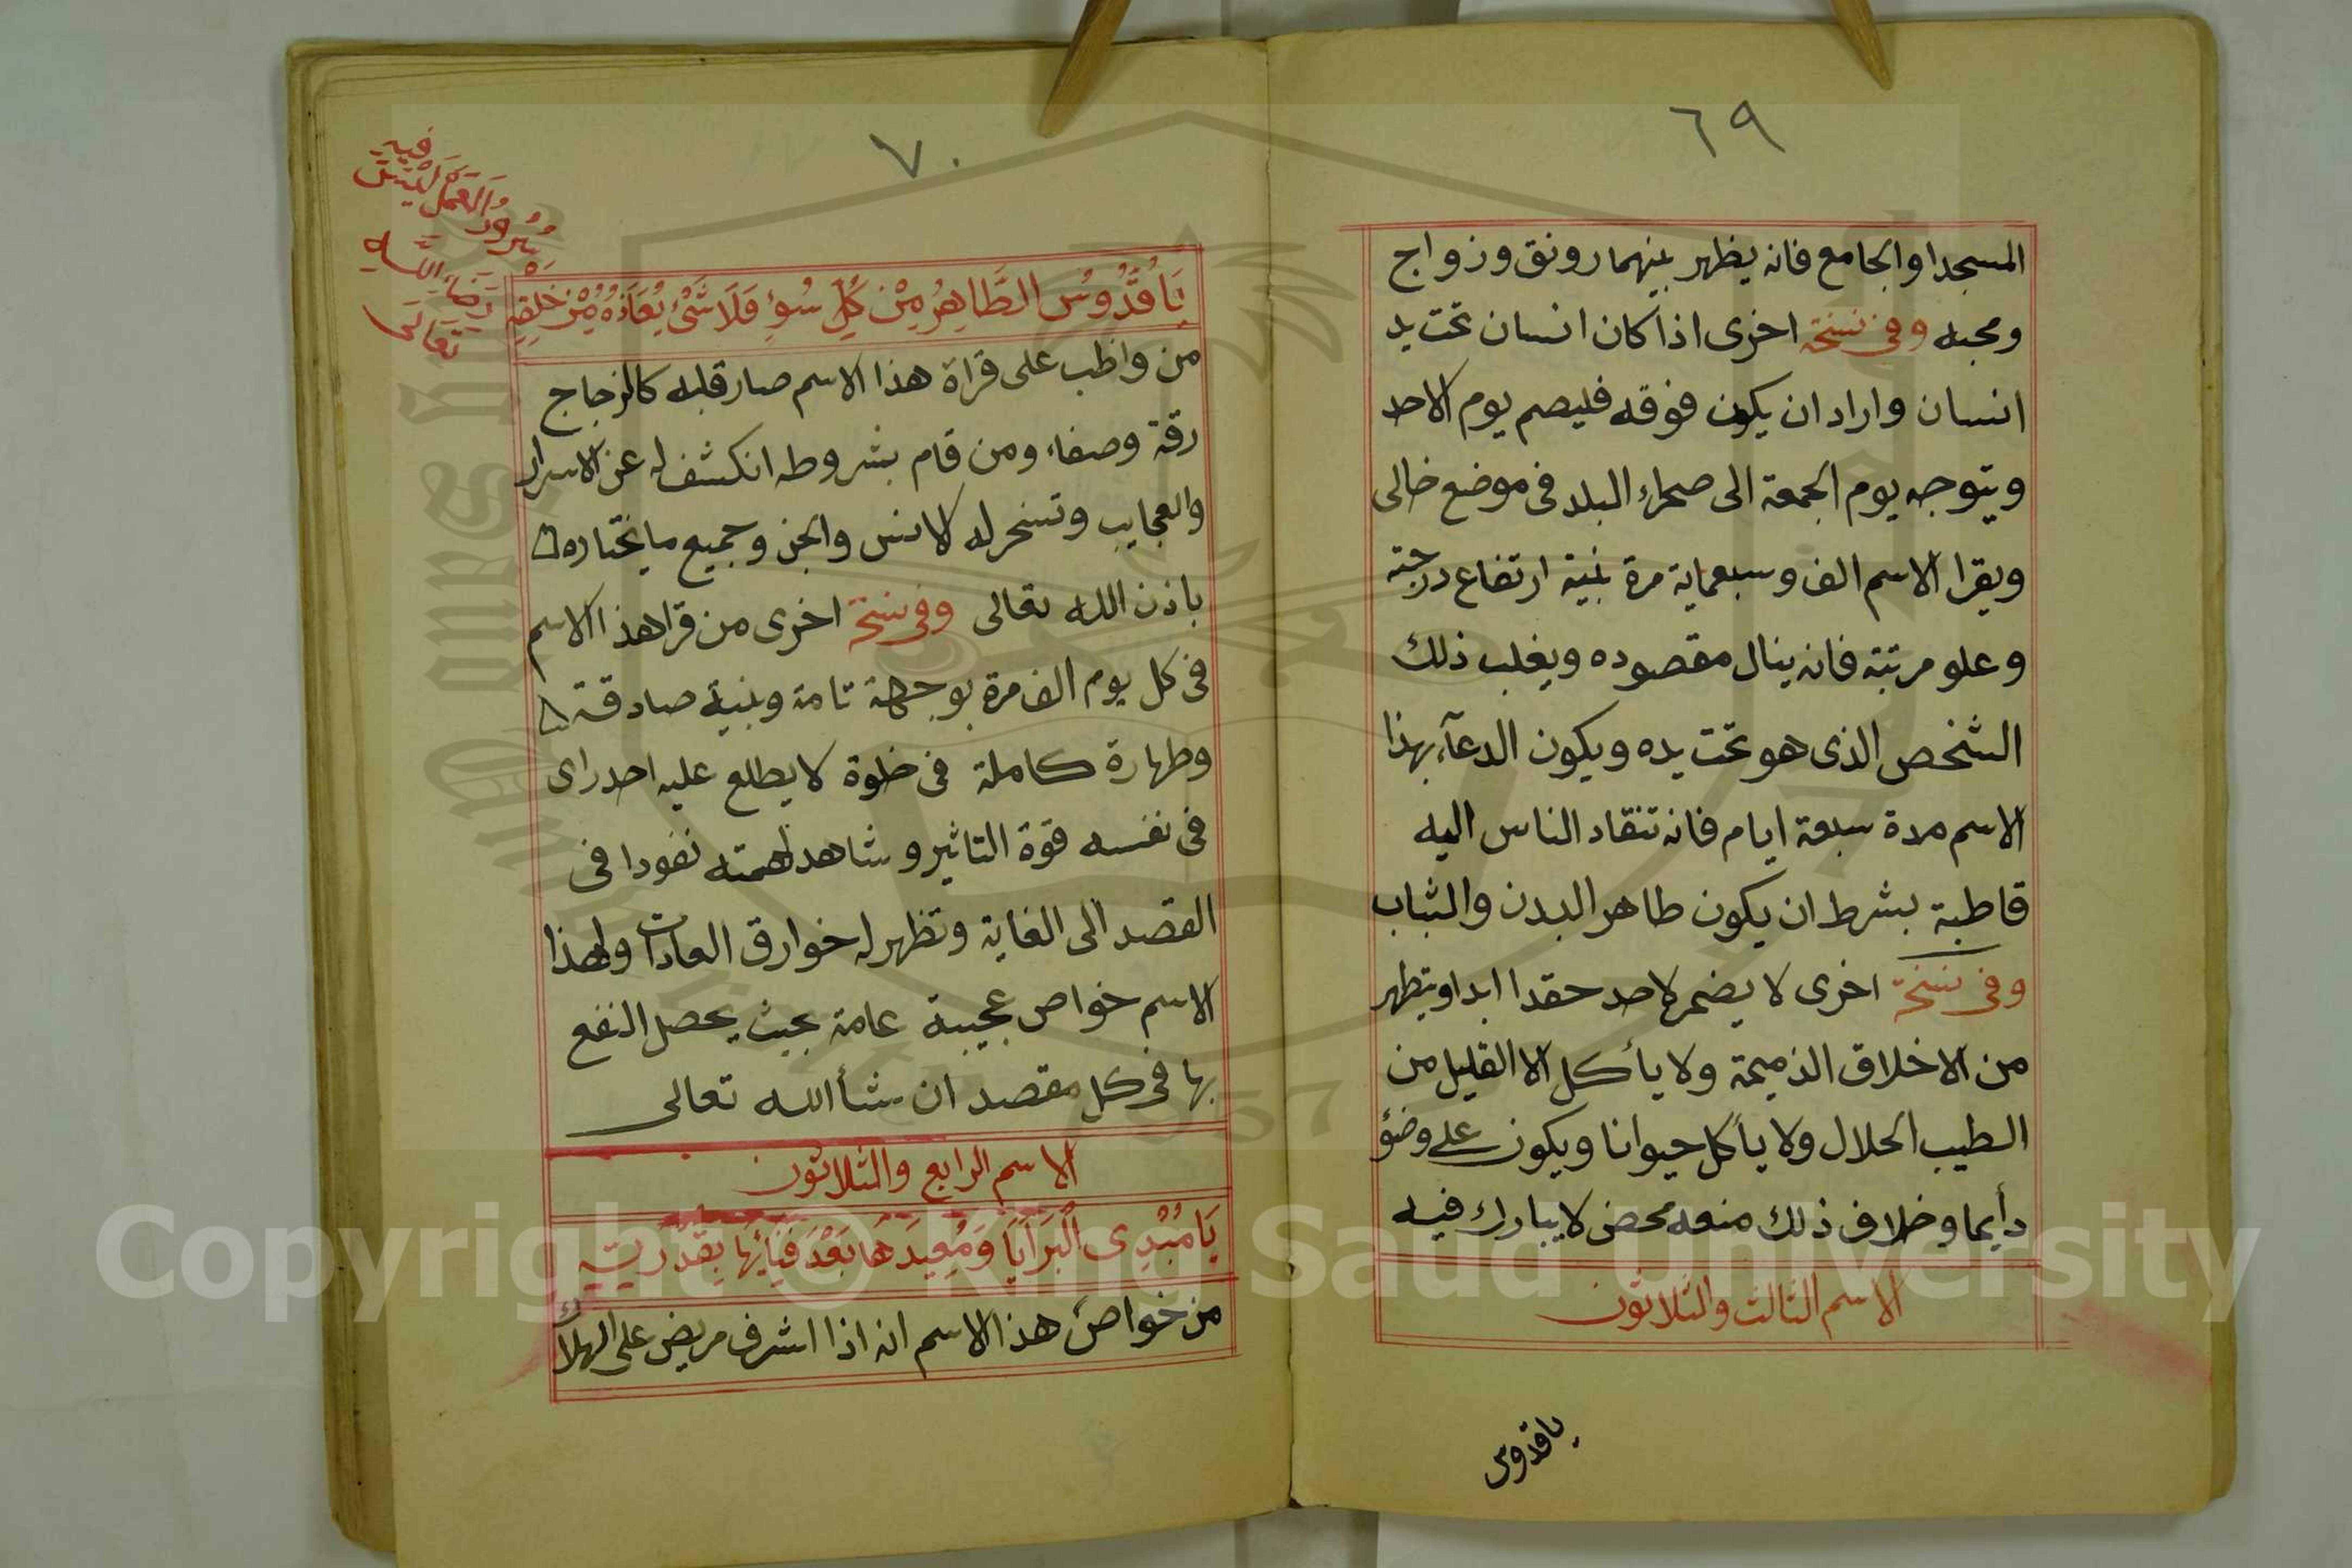 ٦٩
المسجد او الجامع فانه يظهر بينهما رونق وزواج
ومحبه وفى نسخة اخرى اذا كان انسان تحت يد
انسان واراد ان يكون فوقه فليصم يوم الاحد
ويتوجه يوم الجمعة الى صحراء البلد فى موضع خالى
ويقرا الاسم الف وسبعماية مرة بنية ارتفاع درجته
وعلو مرتبته فانه ينال مقصوده ويغلب ذلك
الشخص الذى هو تحت يده ويكون الدعآء بهذا
الاسم مدة سبعة ايام فانه تنقاد الناس اليه
قاطبة بشرط ان يكون طاهر البدن والثياب
وفى نسخة اخرى لا يضمر لاحد حقدا ابدا ويتطهر
من الاخلاق الذميمة ولا يأكل الا القليل من
الطيب الحلال ولا يأكل حيوانا ويكون على وضؤ
دأيما وخلاف ذلك منعه محض لا يبارك فيه
الاسم الثالث والثلاثون
يا قدوس
٧٠
يَا قُدُّوسُ الطَّاهِرُ مِنْ كُلِّ سُوْءٍ فَلَا شَىْءَ يُعَازُّهُ مِنْ خَلْقِهِ
من واظب على قراة هذا الاسم صار قلبه كالزجاج
رقة وصفاء ومن قام بشروطه انكشف له عن الاسرار
والعجايب وتسخر له الانس والجن وجميع ما يختاره
باذن الله تعالى وفى نسخة اخرى من قرا هذا الاسم
فى كل يوم الف مرة بوجهة تامة وبنية صادقة
وطهارة كاملة فى خلوة لا يطلع عليه احد راى
فى نفسه قوة التاثير وشاهد لهمته نفودا فى
القصد الى الغاية وتظهر له خوارق العادات ولهذا
الاسم خواص عجيبة عامة بحيث يحصل النفع
بها فى كل مقصد ان شأ الله تعالى
الاسم الرابع والثلاثون
يَا مُبْدِى الْبَرَايَا وَمُعِيدَهَا بَعْدَ فَنَايِهَا بِقُدْرَتِهِ
من خواص هذا الاسم انه اذا اشرف مريض على الهلاك
فيه
والعمل ليس
الله
تعالى
Copyright © King Saud University
1957